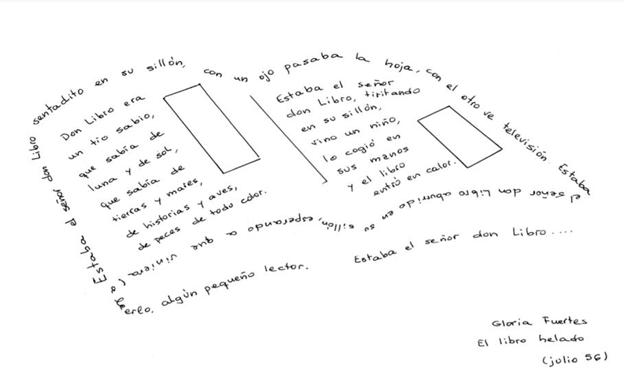 Estaba el señor don Libro sentadito en su sillón, con un ojo pasaba la hoja, con el otro ve televisión. Estaba
el señor don Libro aburrido en su sillón, esperando a que viniera (a
leerlo, algún pequeño lector.
Estaba el señor don Libro....
Don Libro era
un tío sabio,
que sabía de
luna y de sol,
que sabía de
tierras y mares,
de historias y aves,
de peces de todo color.
Estaba el señor
don Libro, tiritando
en su sillón,
vino un niño,
lo cogió en
sus manos
y el libro
entró en calor.
Gloria Fuertes
El libro helado
(julio 56)